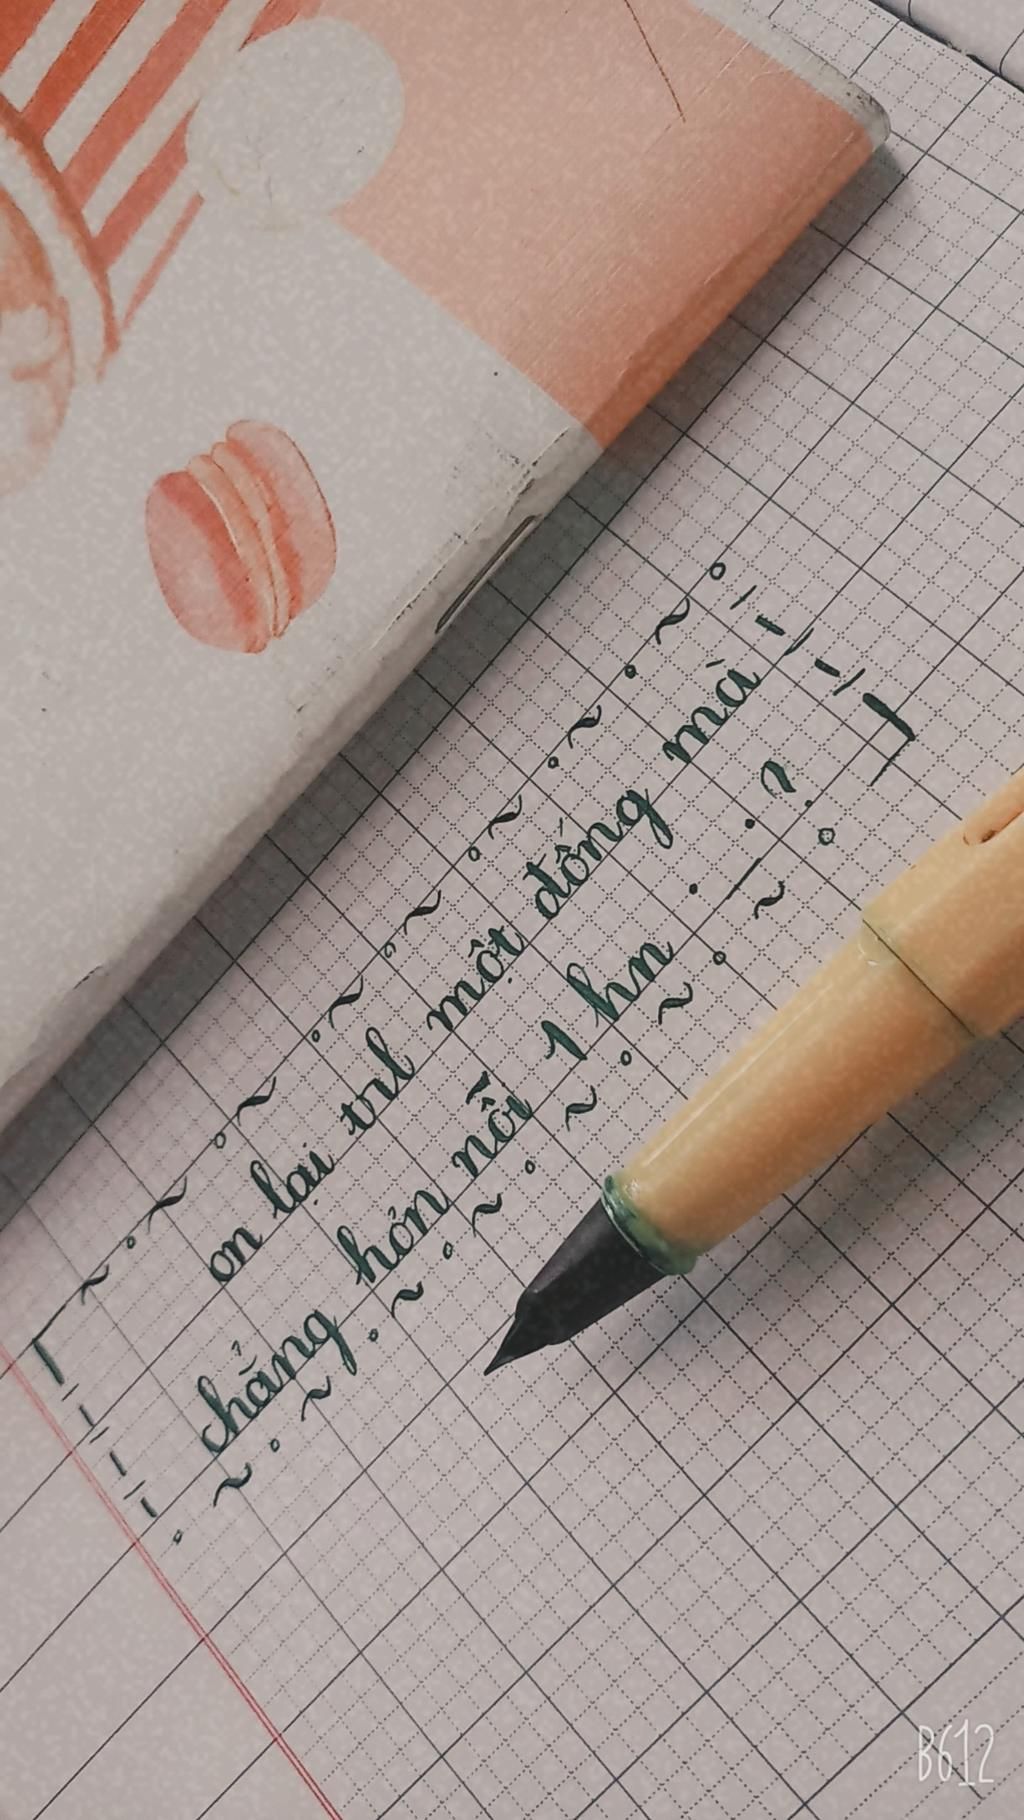 on lại trl một đống mà
chẳng hơn nổi 1 hn . _ . ?
B612